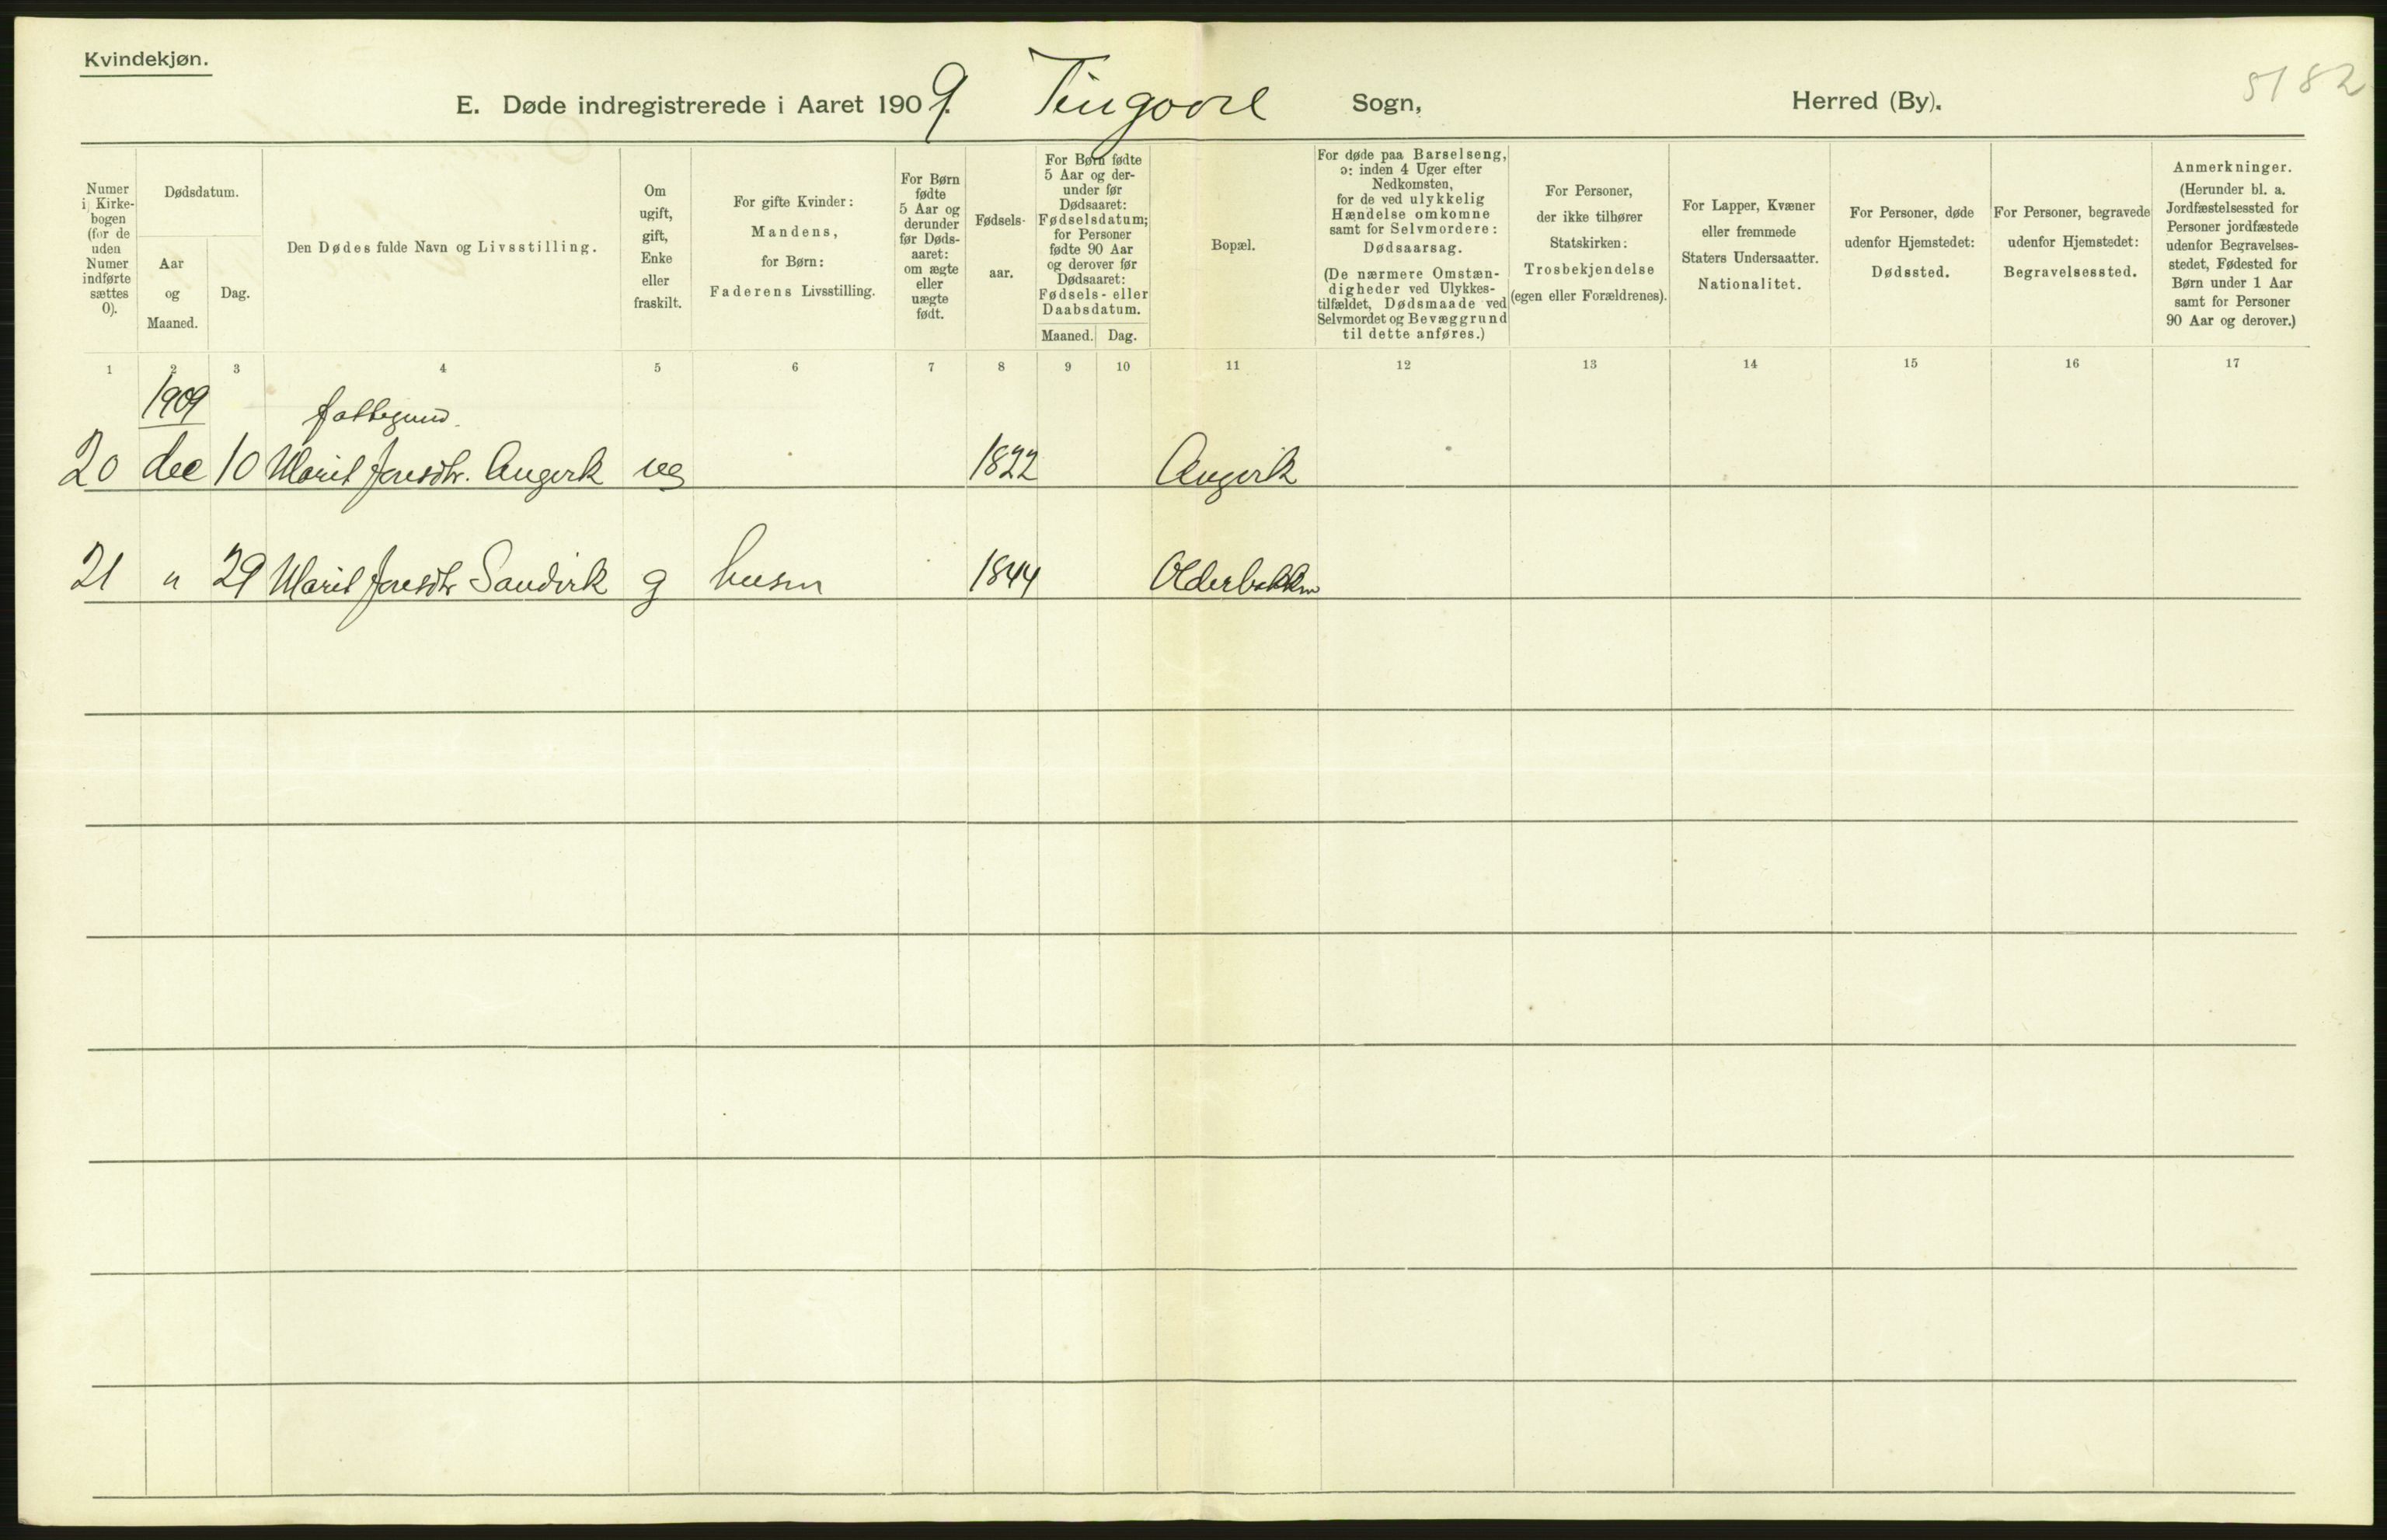 Kvindekjøn.
E. Døde indregistrerede i Aaret 1909. Tingvoll Sogn, Herred (By).
5182
Numer i Kirke-
bogen
(for de
uden
Numer
indførte
sættes
0).
Dødsdatum.
Aar
og
Maaned.
Dag.
Den Dødes fulde Navn og Livsstilling.
Om
ugift,
gift,
Enke
eller
fraskilt.
For gifte Kvinder:
Mandens,
for Børn:
Faderens Livsstilling.
For Børn
fødte
5 Aar og
derunder
før Døds-
aaret:
om ægte
eller
uægte
født.
Fødsels-
aar.
For Børn fødte
5 Aar og der-
under før
Dødsaaret:
Fødselsdatum;
for Personer
fødte 90 Aar
og derover før
Dødsaaret:
Fødsels- eller
Daabsdatum.
Maaned. Dag.
Bopæl.
For døde paa Barselseng,
ɔ: inden 4 Uger efter
Nedkomsten,
for de ved ulykkelig
Hændelse omkomne
samt for Selvmordere:
Dødsaarsag.
(De nærmere Omstæn-
digheder ved Ulykkes-
tilfældet, Dødsmaade ved
Selvmordet og Bevæggrund
til dette anføres.)
For Personer,
der ikke tilhører
Statskirken:
Trosbekjendelse
(egen eller Forældrenes).
For Lapper, Kvæner
eller fremmede
Staters Undersaatter.
Nationalitet.
For Personer, døde
udenfor Hjemstedet:
Dødssted.
For Personer, begravede
udenfor Hjemstedet:
Begravelsessted.
Anmerkninger.
(Herunder bl. a.
Jordfæstelsessted for
Personer jordfæstede
udenfor Begravelses-
stedet, Fødested for
Børn under 1 Aar
samt for Personer
90 Aar og derover.)
1 2 3 4 5 6 7 8 9 10 11 12 13 14 15 16 17
1909 fattigund.
20 dec 10 Marit Jonsdtr. Angvik ug 1822 Angvik
21 " 29 Marit Jonsdtr Sandvik g husm 1844 Olderbakken